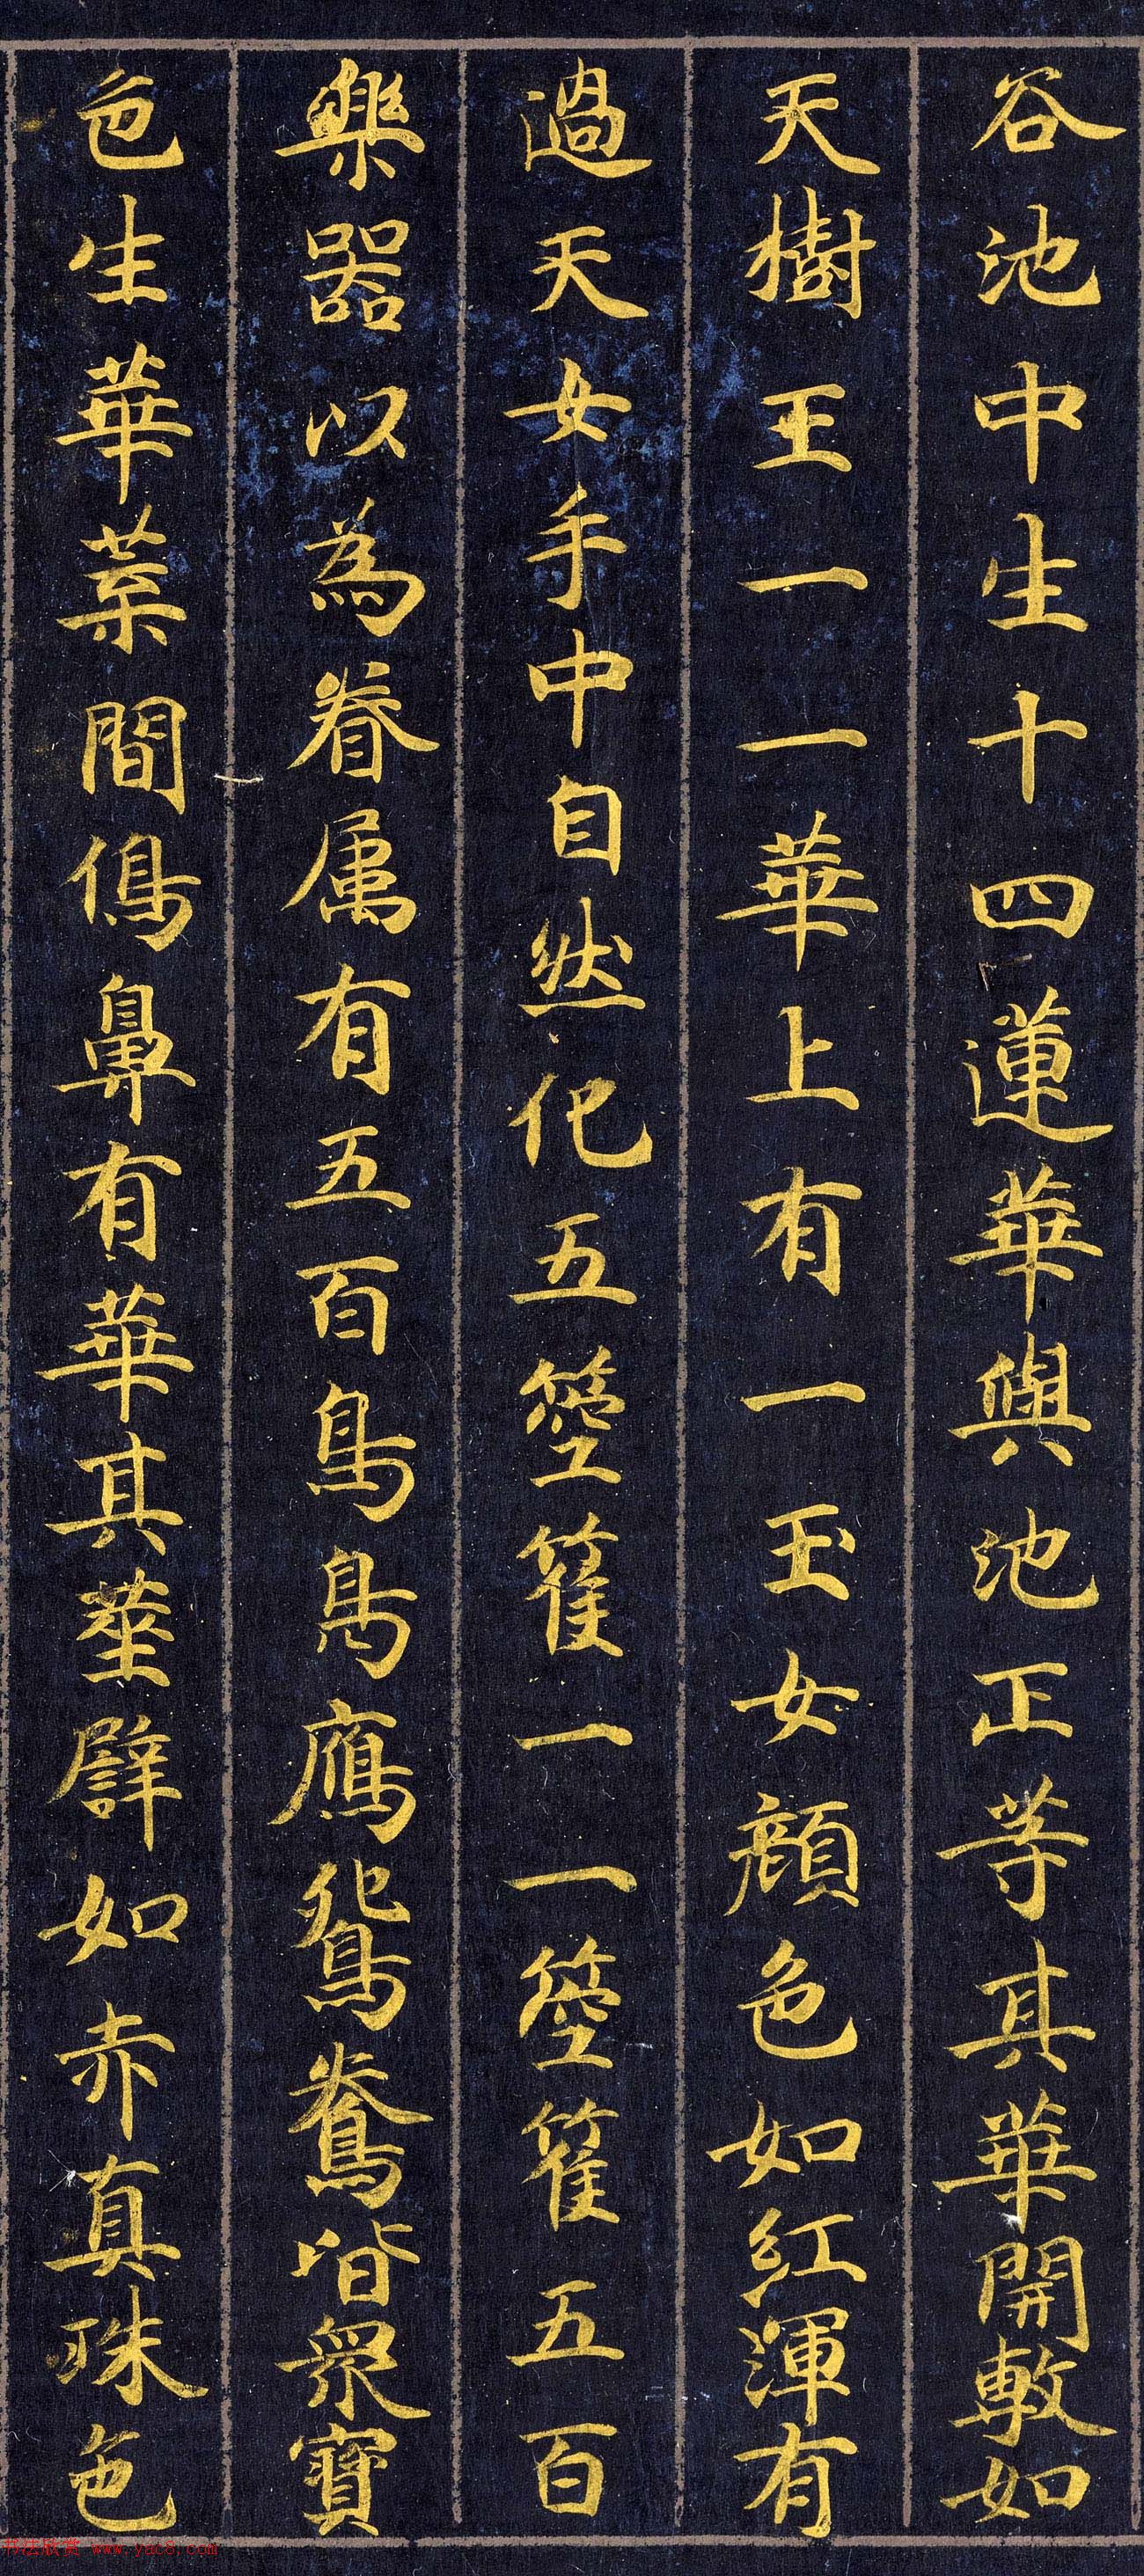 谷池中生十四蓮華與池正等其華開敷如
天樹王一一華上有一玉女顏色如紅渾有
過天女手中自然化五箜篌一一箜篌五百
樂器以為眷属有五百鳥鳧鴈鴛鴦皆眾寶
色生華葉間鳥鼻有華其莖譬如赤真珠色
书法欣赏 www.yac8.com